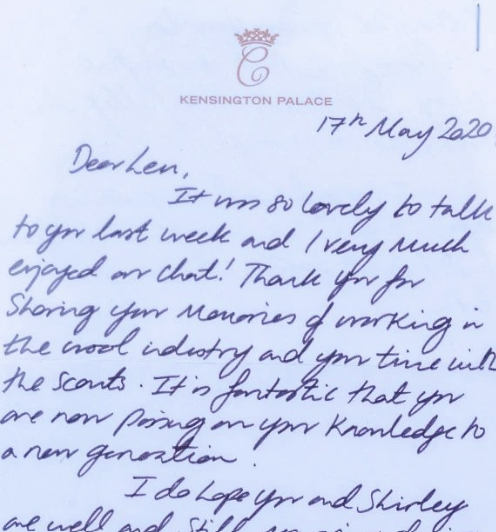 C
KENSINGTON PALACE
17th May 2020
Dear Len,
It was so lovely to talk
to you last week and I very much
enjoyed our chat! Thank you for
Sharing your Memories of working in
the wool industry and your time with
the Scouts. It is fantastic that you
are now passing on your Knowledge to
a new generation.
I do hope you and Shirley
are well and still